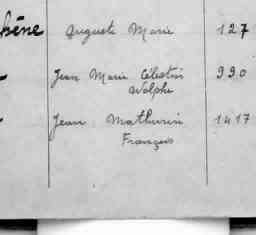 hêne Auguste Marie 127
Jean Marie Célestin 990
Wolphe
Jean Mathurin 1417
François